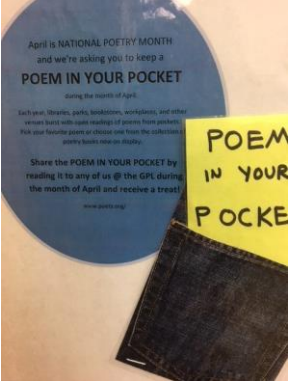 April is NATIONAL POETRY MONTH
and we're asking you to keep a
POEM IN YOUR POCKET
during the month of April.
Each year, libraries, parks, bookstores, workplaces, and other
venues burst with open readings of poems from pockets.
Pick your favorite poem or choose one from the collection
poetry books now on display.
Share the POEM IN YOUR POCKET by
reading it to any of us @ the GPL during
the month of April and receive a treat!
POEM
IN YOUR
POCKE